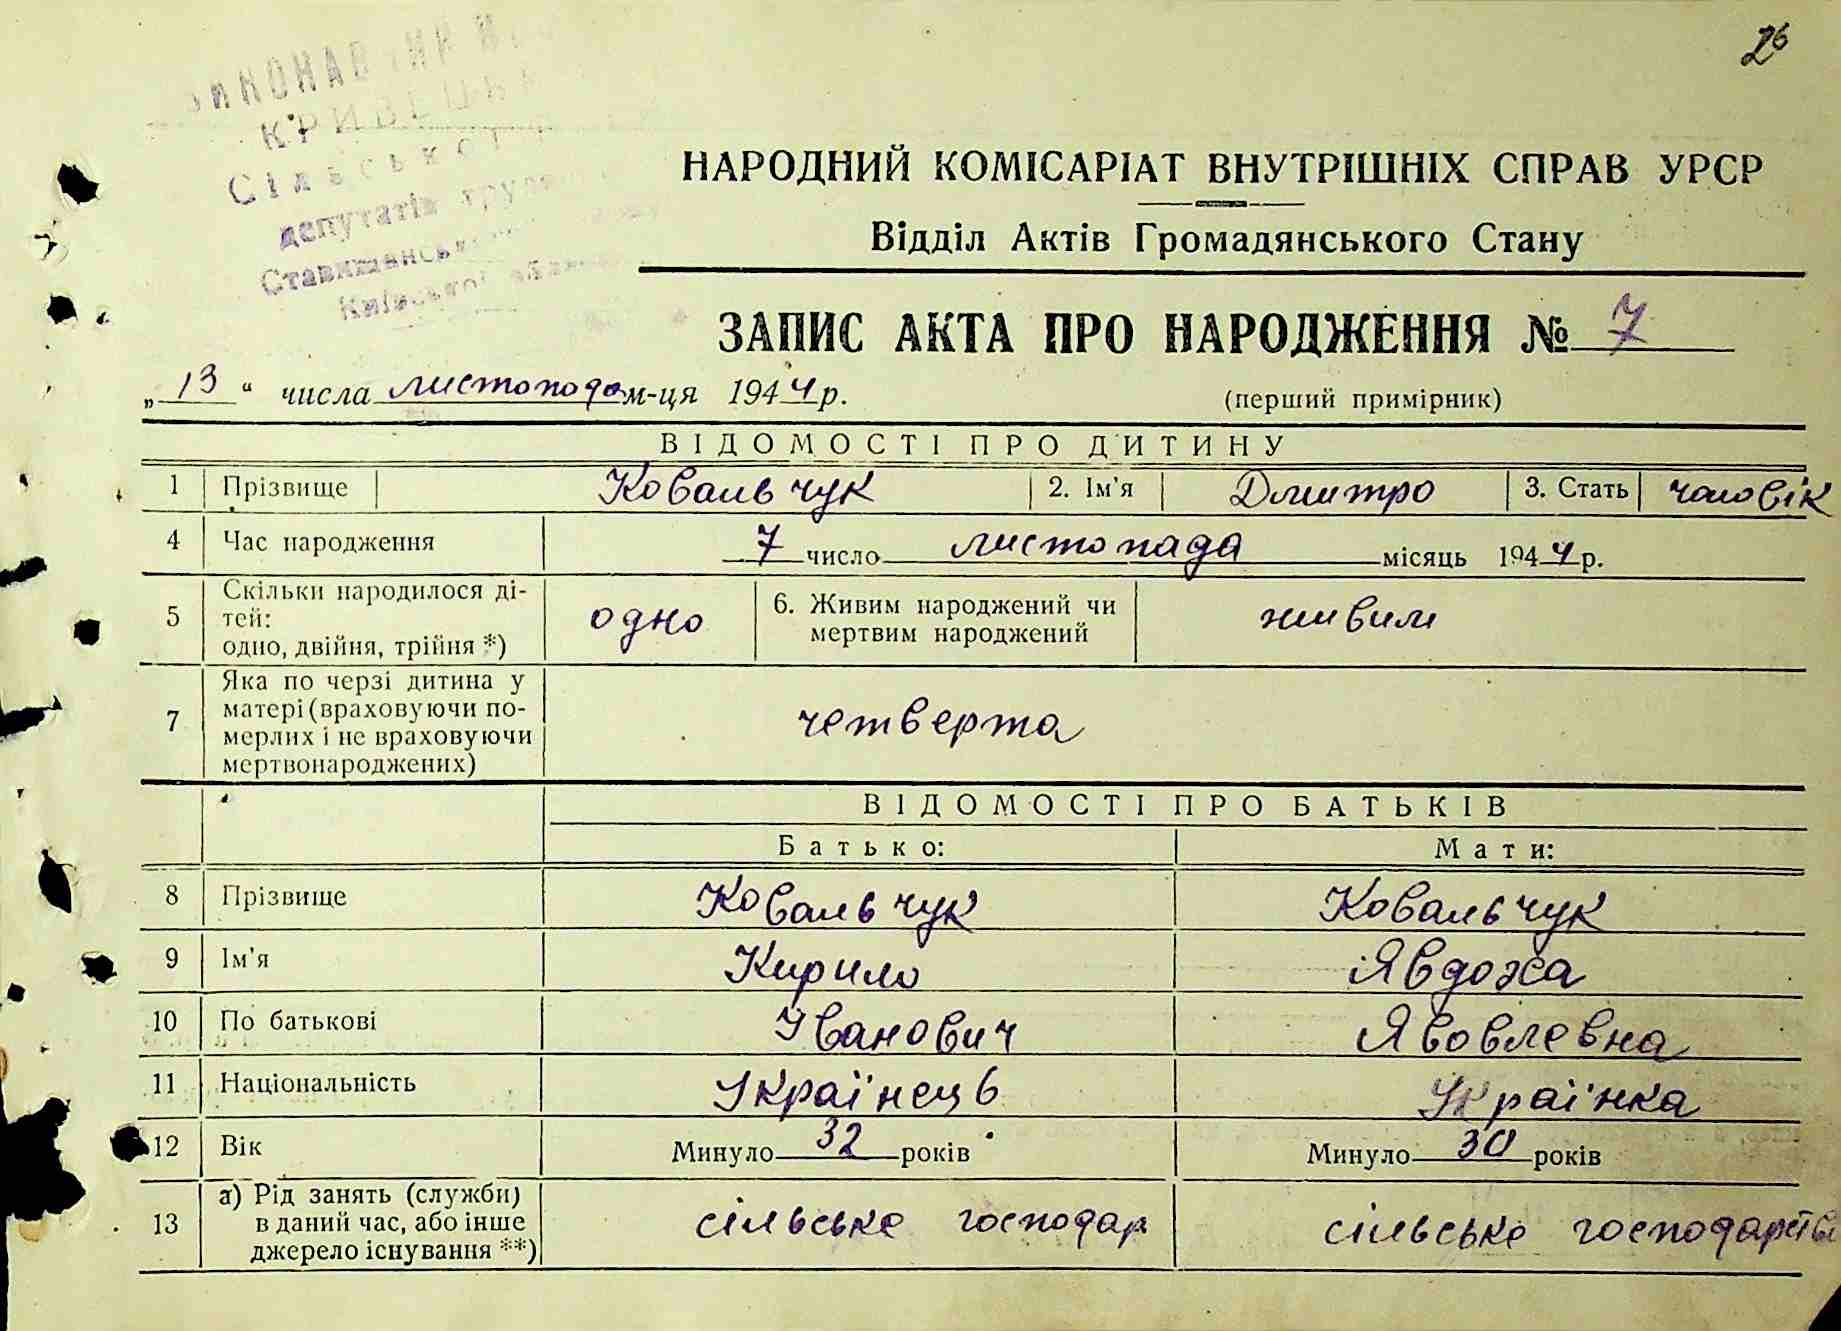 26
КРИВЕЦЬК
Сільської
депутатів трудящ
Ставищансь
Київської област
НАРОДНИЙ КОМІСАРІАТ ВНУТРІШНІХ СПРАВ УРСР
Відділ Актів Громадянського Стану
ЗАПИС АКТА ПРО НАРОДЖЕННЯ № 7
„13“ числа листопода м-ця 1944 р.
(перший примірник)
ВІДОМОСТІ ПРО ДИТИНУ
1 Прізвище Ковальчук 2. Ім'я Дмитро 3. Стать чоловік
4 Час народження 7 число листопада місяць 1944 р.
5 Скільки народилося ді-
тей:
одно, двійня, трійня *) одно 6. Живим народжений чи
мертвим народжений живим
7 Яка по черзі дитина у
матері (враховуючи по-
мерлих і не враховуючи
мертвонароджених) четверта
ВІДОМОСТІ ПРО БАТЬКІВ
Батько: Мати:
8 Прізвище Ковальчук Ковальчук
9 Ім'я Кирило Явдоха
10 По батькові Іванович Яковлевна
11 Національність Українець Українка
12 Вік Минуло 32 років Минуло 30 років
13 а) Рід занять (служби)
в даний час, або інше
джерело існування **) сільське господар сільське господарств